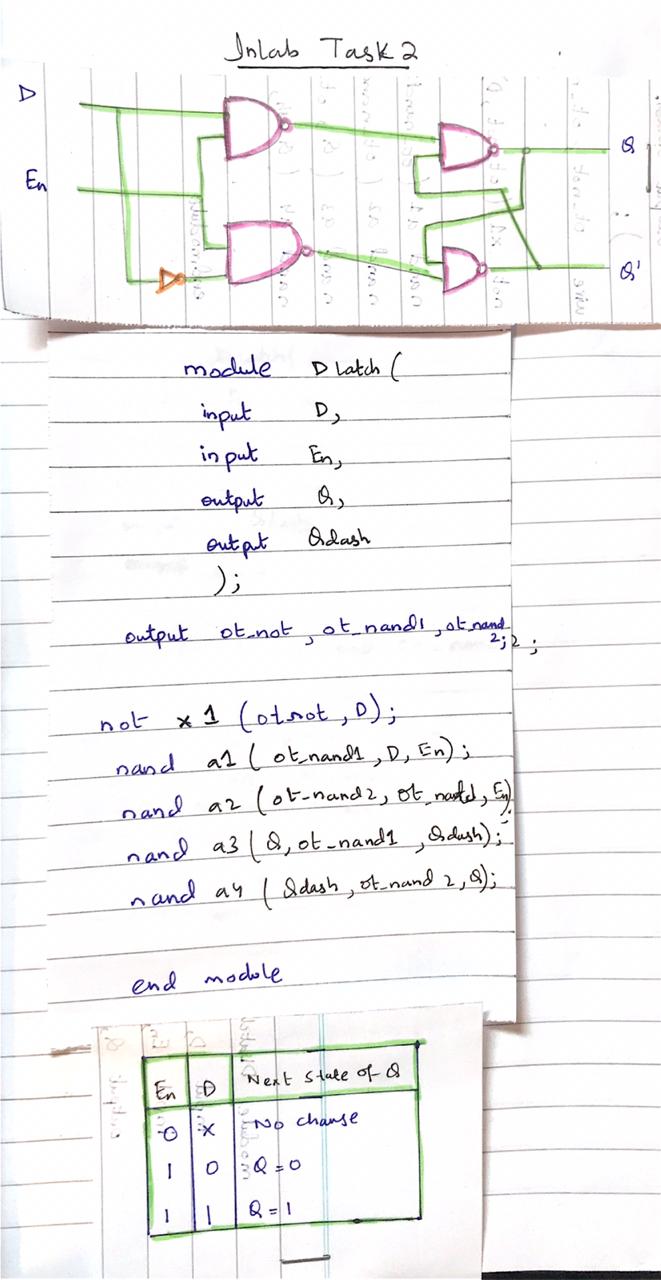 Inlab Task 2
D
Q
En
Q'
module D Latch (
input D,
input En,
output Q,
output Qdash
);
output ot_not, ot_nand1, ot_nand
2; 2 ;
not x1 (ot_not, D);
nand a1 ( ot_nand1, D, En);
nand a2 (ot_nand2, En);
nand a3 ( Q, ot_nand1, Qdash);
nand a4 ( Qdash, ot_nand 2, Q);
end module
En D Next State of Q
0 x No change
1 0 Q = 0
1 1 Q = 1